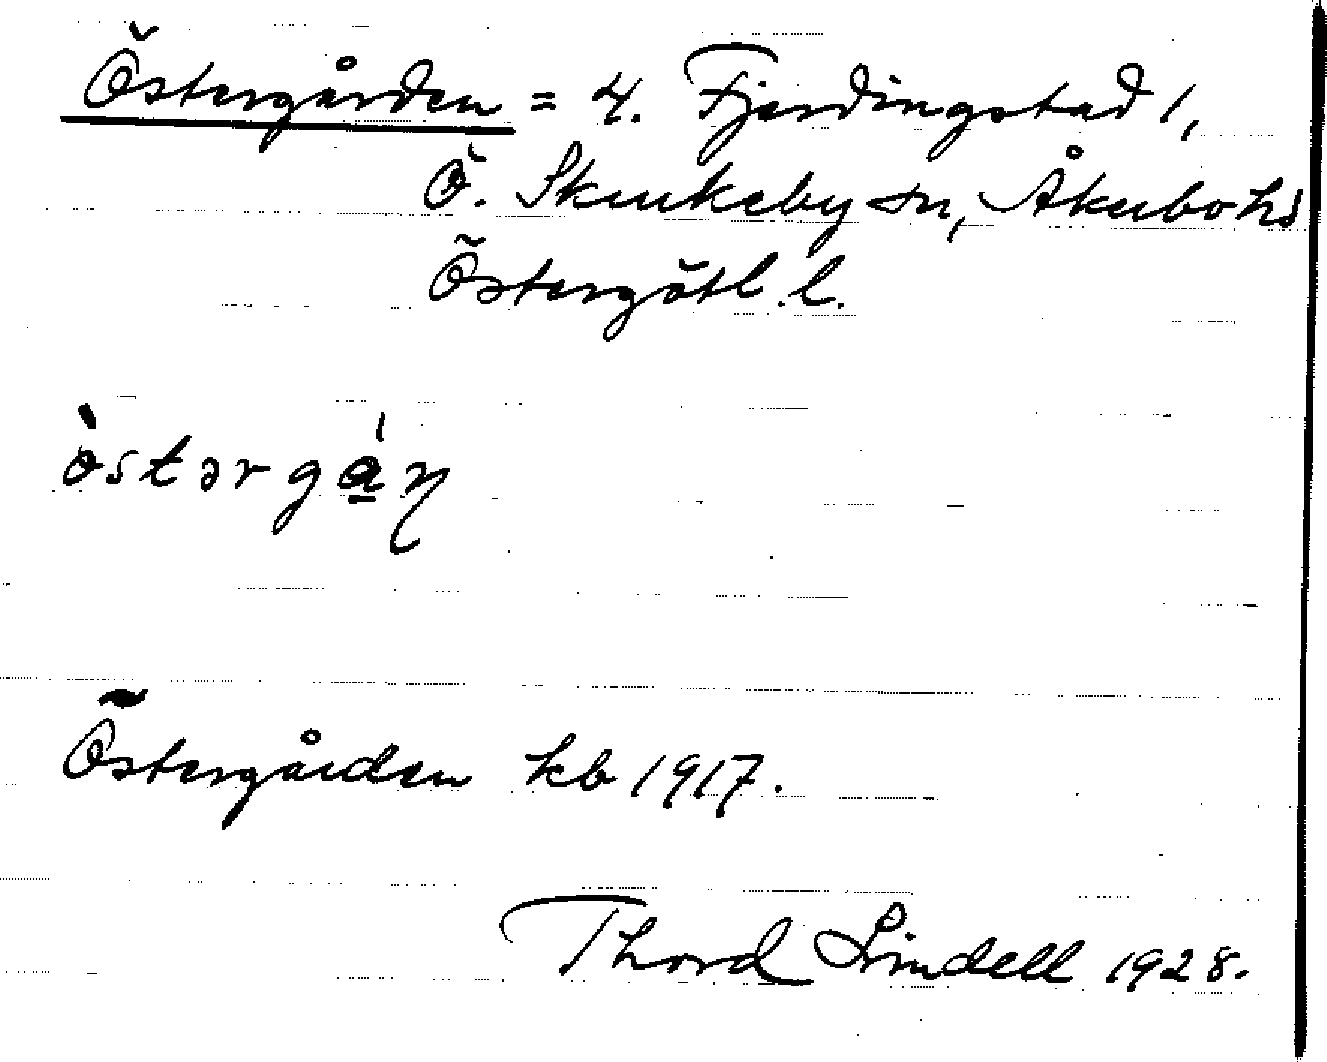 Östergården = 4. Fjerdingstad 1,
Ö. Skrukeby sn, Åkerbo hd
Östergötl. l.
òstərgán
Östergården kb 1917.
Thord Lindell 1928.